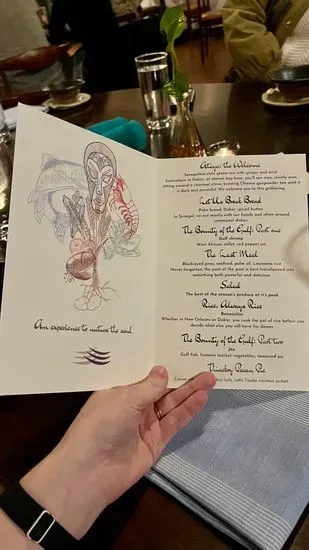 An experience to nurture the soul
Ataya: the Welcome
Senegalese-style green tea with ginger and mint
Somewhere in Dakar, at almost any hour, you'll see men, mostly men,
sitting around a charcoal stove, brewing Chinese gunpowder tea until it
is dark and powerful. We welcome you to this gathering.
Let Us Break Bread
Palm bread, Dakar spiced butter
In Senegal, we eat mostly with our hands and often around
communal dishes
The Bounty of the Gulf: Part one
Gulf shrimp
West African millet, red pepper jus
The Last Meal
Black-eyed peas, seafood, palm oil, Louisiana rice
Never forgotten, the pain of the past is best transformed into
something both powerful and delicious
Salad
The best of the season's produce at it's peak
Rice, Always Rice
Whether in New Orleans or Dakar, you cook the pot of rice before you
decide what else you will have for dinner.
The Bounty of the Gulf: Part two
Jën
Gulf fish, farmers market vegetables, tamarind jus
Thiakry Pecan Pie
tuile, cafe Touba coconut sorbet